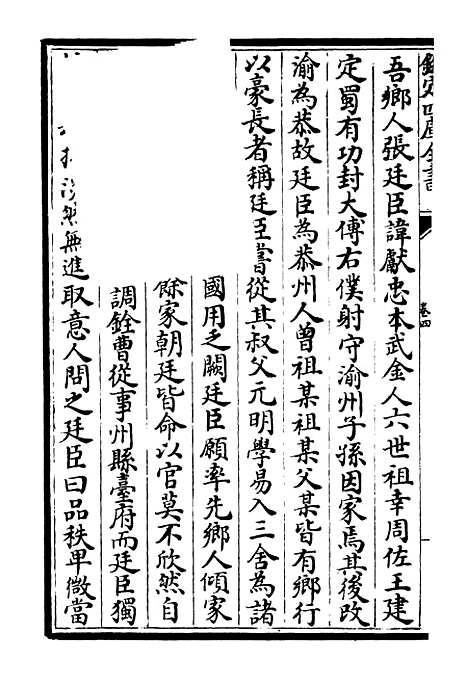 欽定四庫全書
卷四
吾鄉人張廷臣諱獻忠本武金人六世祖幸周佐王建
定蜀有功封大傅右僕射守渝州子孫因家焉其後改
渝為恭故廷臣為恭州人曾祖某祖某父某皆有鄉行
以豪長者稱廷臣嘗從其叔父元明學易入三舍為諸
國用乏闕廷臣願率先鄉人傾家
餘家朝廷皆命以官莫不欣然自
調銓曹從事州縣臺府而廷臣獨
無進取意人問之廷臣曰品秩卑微當